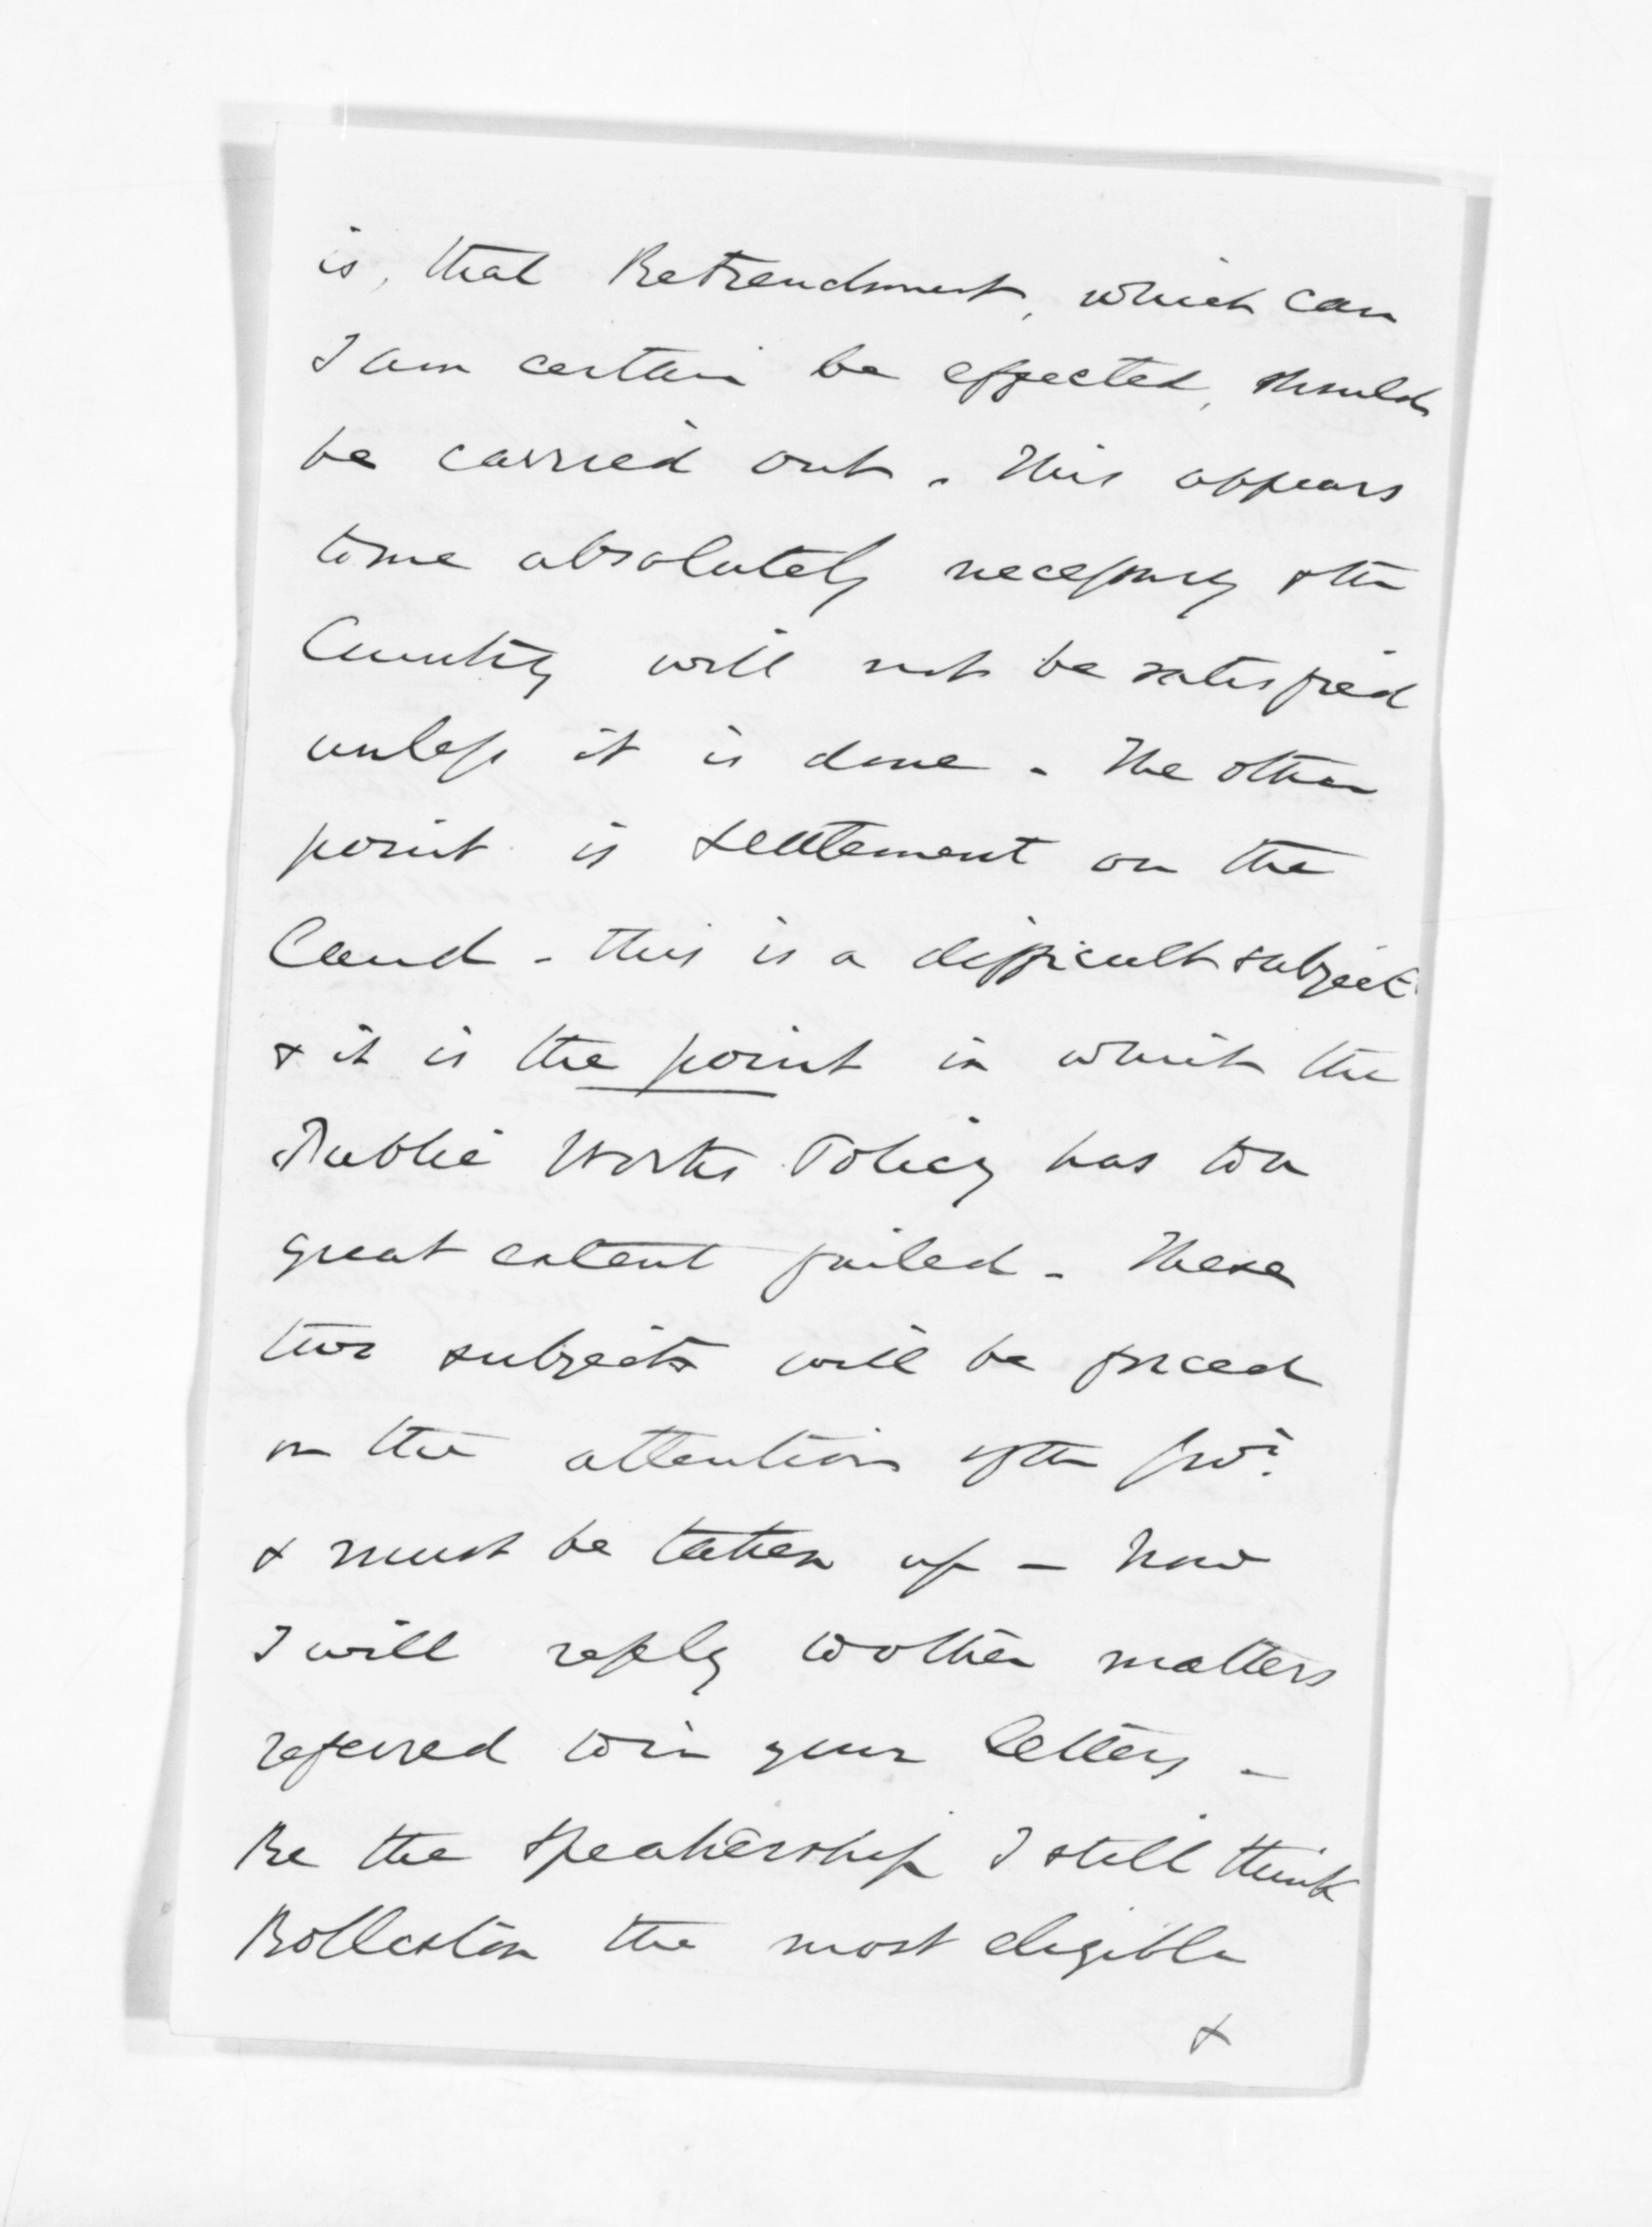 is, that Retrenchment, which can
I am certain be effected, should
be carried out. This appears
to me absolutely necessary & the
Country will not be satisfied
unless it is done - The other
point is settlement on the
Land - this is a difficult subject
& it is the point in which the
Public Works Policy has to a
great extent failed - These
two subjects will be forced
on the attention of the Govt.
& must be taken up - Now
I will reply to other matters
referred to in your letters -
Re the Speakership I still think
Rolleston the most eligible
&